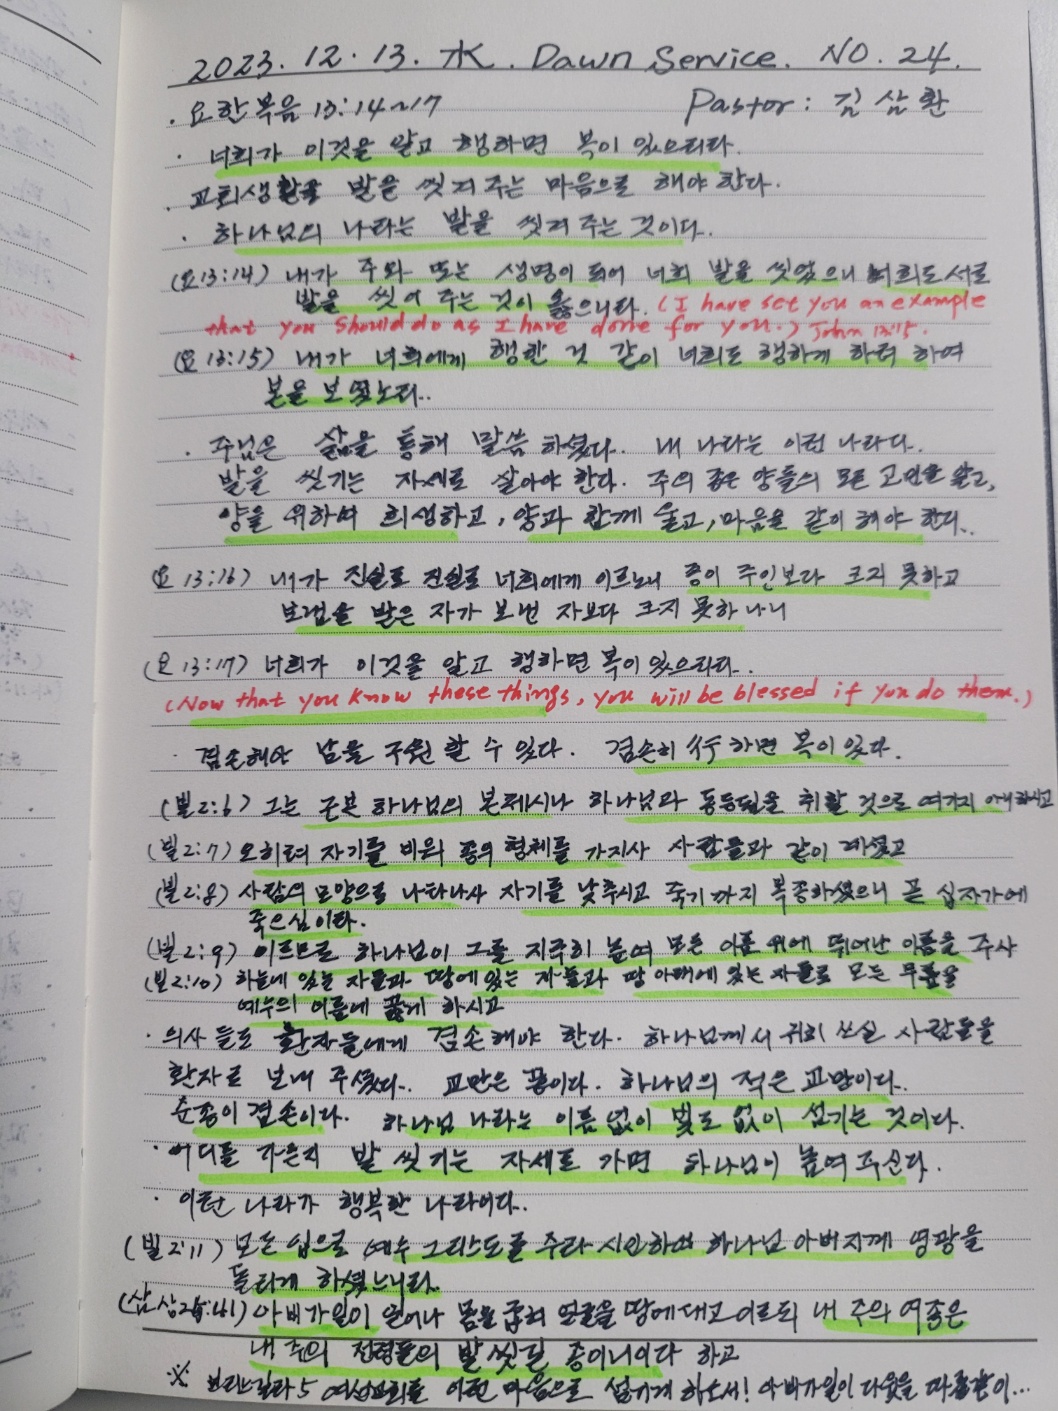 2023. 12. 13. 水. Dawn Service. NO. 24.
· 요한복음 13:14~17 Pastor : 김삼환
· 너희가 이것을 알고 행하면 복이 있으리라.
· 교회생활을 발을 씻겨 주는 마음으로 해야 한다.
· 하나님의 나라는 발을 씻겨 주는 것이다.
(요13:14) 내가 주와 또는 선생이 되어 너희 발을 씻었으니 너희도 서로
발을 씻어 주는 것이 옳으니라. (I have set you an example
that you should do as I have done for you.) John 13:15.
(요 13:15) 내가 너희에게 행한 것 같이 너희도 행하게 하려 하여
본을 보였노라..
· 주님은 삶을 통해 말씀 하셨다. 내 나라는 이런 나라다.
발을 씻기는 자세로 살아야 한다. 주의 종은 양들의 모든 고민을 알고,
양을 위하여 희생하고, 양과 함께 울고, 마음을 같이 해야 한다..
(요 13:16) 내가 진실로 진실로 너희에게 이르노니 종이 주인보다 크지 못하고
보냄을 받은 자가 보낸 자보다 크지 못하나니
(요 13:17) 너희가 이것을 알고 행하면 복이 있으리라..
(Now that you know these things, you will be blessed if you do them.)
· 겸손해야 남을 구원 할 수 있다. 겸손히 行 하면 복이 있다.
(빌2:6) 그는 근본 하나님의 본체시나 하나님과 동등됨을 취할 것으로 여기지 아니하시고
(빌2:7) 오히려 자기를 비워 종의 형체를 가지사 사람들과 같이 되셨고
(빌2:8) 사람의 모양으로 나타나사 자기를 낮추시고 죽기까지 복종하셨으니 곧 십자가에
죽으심이라.
(빌2:9) 이르므로 하나님이 그를 지극히 높여 모든 이름 위에 뛰어난 이름을 주사
(빌2:10) 하늘에 있는 자들과 땅에 있는 자들과 땅 아래에 있는 자들로 모든 무릎을
예수의 이름에 꿇게 하시고
· 의사 들도 환자들에게 겸손해야 한다. 하나님께서 귀히 쓰실 사람들을
환자로 보내 주셨다.. 교만은 끝이다. 하나님의 적은 교만이다.
순종이 겸손이다. 하나님 나라는 이름 없이 빛도 없이 섬기는 것이다.
· 어디를 가든지 발 씻기는 자세로 가면 하나님이 높여 주신다.
· 이런 나라가 행복한 나라이다.
(빌2:11) 모든 입으로 예수 그리스도를 주라 시인하여 하나님 아버지께 영광을
돌리게 하셨느니라.
(삼상25:41) 아비가일이 일어나 몸을 굽혀 얼굴을 땅에 대고 이르되 내 주의 여종은
내 주의 전령들의 발 씻길 종이니이다 하고
※ 브리스길라 5 여선교회를 이런 마음으로 섬기게 하소서! 아비가일이 다윗을 따름같이...